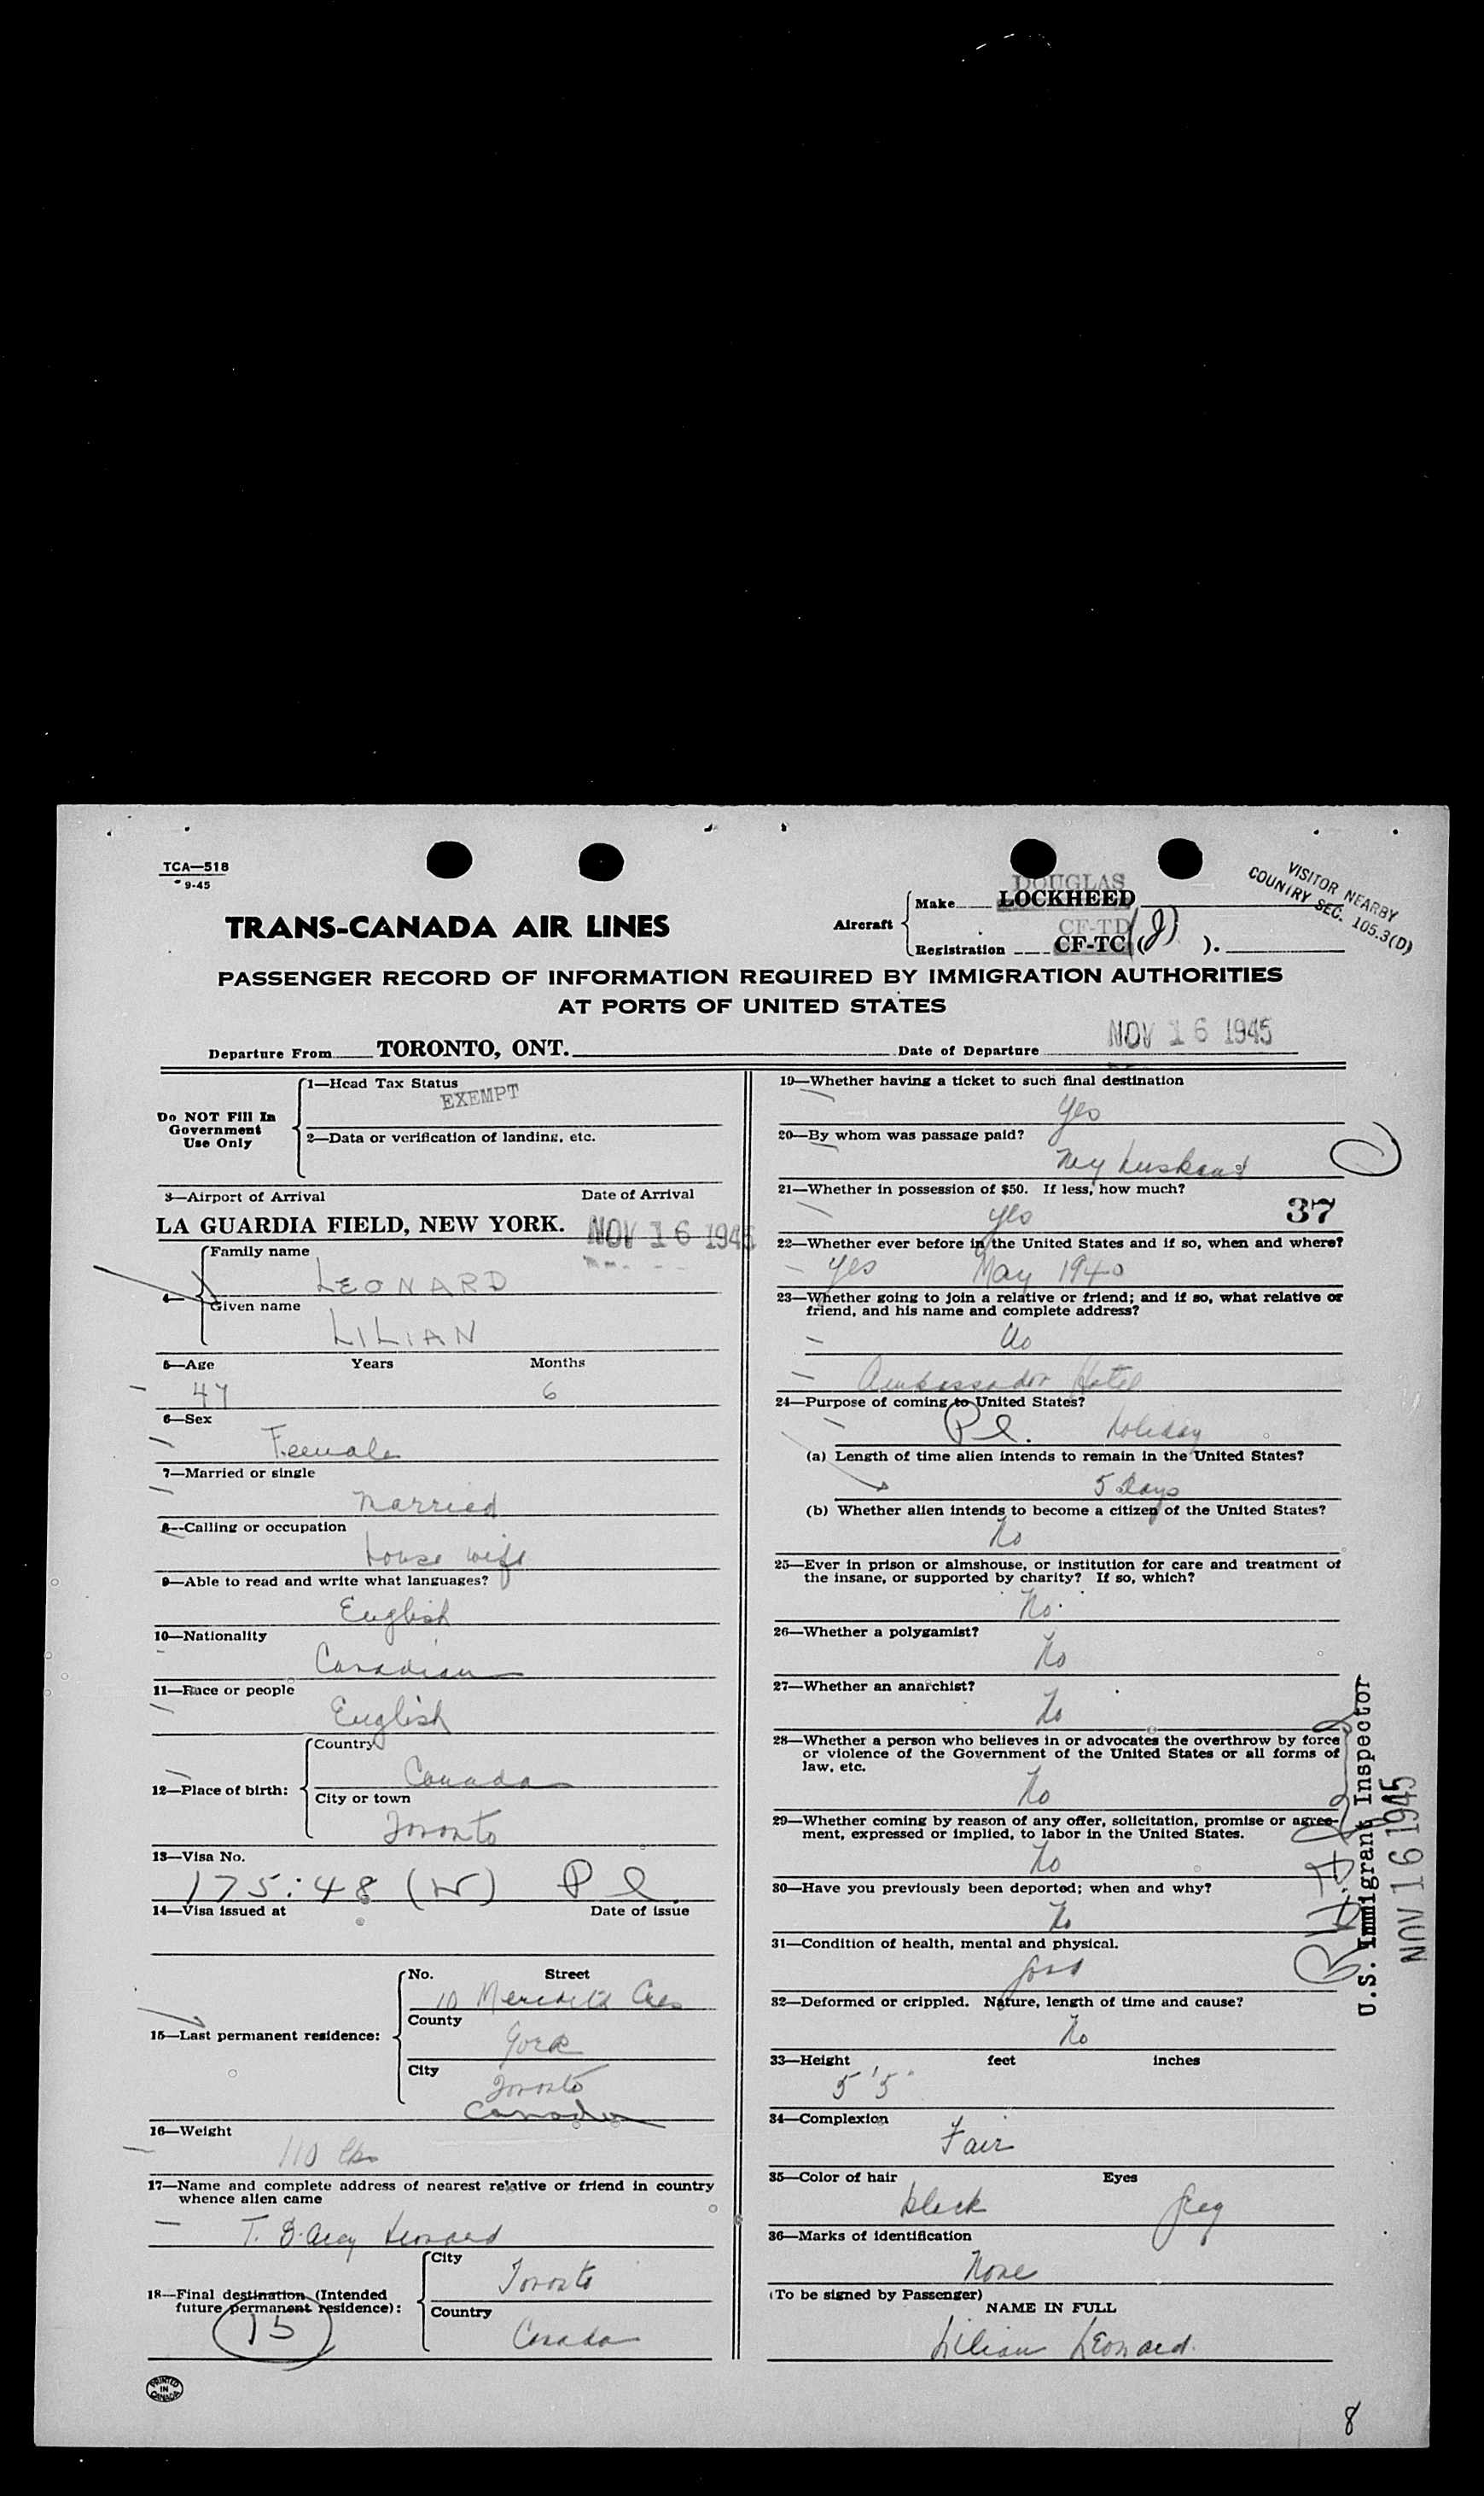 TCA—518
9-45
VISITOR NEARBY
COUNTRY SEC. 105.3(D)
TRANS-CANADA AIR LINES
Aircraft
Make DOUGLAS
LOCKHEED
Registration CF-TD
CF-TC ( ).
PASSENGER RECORD OF INFORMATION REQUIRED BY IMMIGRATION AUTHORITIES
AT PORTS OF UNITED STATES
Departure From TORONTO, ONT. Date of Departure NOV 16 1945
Do NOT Fill In
Government
Use Only
1—Head Tax Status
EXEMPT
2—Data or verification of landing, etc.
3—Airport of Arrival Date of Arrival
LA GUARDIA FIELD, NEW YORK. NOV 16 1945
4—
Family name
LEONARD
Given name
LILIAN
5—Age Years Months
47 6
6—Sex
Female
7—Married or single
Married
8—Calling or occupation
house wife
9—Able to read and write what languages?
English
10—Nationality
Canadian
11—Race or people
English
12—Place of birth:
Country
Canada
City or town
Toronto
13—Visa No.
175:48 (W) Pl.
14—Visa issued at Date of issue
15—Last permanent residence:
No. Street
10 Meredith Cres
County
York
City
Toronto
Canada
16—Weight
110 lbs
17—Name and complete address of nearest relative or friend in country
whence alien came
T. D'Arcy Leonard
18—Final destination (Intended
future permanent residence):
15
City
Toronto
Country
Canada
PRINTED
IN
CANADA
19—Whether having a ticket to such final destination
Yes
20—By whom was passage paid?
My husband
21—Whether in possession of $50. If less, how much?
yes
37
22—Whether ever before in the United States and if so, when and where?
yes May 1940
23—Whether going to join a relative or friend; and if so, what relative or
friend, and his name and complete address?
No
Ambassador Hotel
24—Purpose of coming to United States?
Pl. holiday
(a) Length of time alien intends to remain in the United States?
5 Days
(b) Whether alien intends to become a citizen of the United States?
No
25—Ever in prison or almshouse, or institution for care and treatment of
the insane, or supported by charity? If so, which?
No.
26—Whether a polygamist?
No
27—Whether an anarchist?
No
28—Whether a person who believes in or advocates the overthrow by force
or violence of the Government of the United States or all forms of
law, etc.
No
29—Whether coming by reason of any offer, solicitation, promise or agree-
ment, expressed or implied, to labor in the United States.
No
30—Have you previously been deported; when and why?
No
31—Condition of health, mental and physical.
good
32—Deformed or crippled. Nature, length of time and cause?
No
33—Height feet inches
5'5"
34—Complexion
Fair
35—Color of hair Eyes
black Grey
36—Marks of identification
None
(To be signed by Passenger)
NAME IN FULL
Lilian Leonard.
U.S. Immigrant Inspector
NOV 16 1945
8